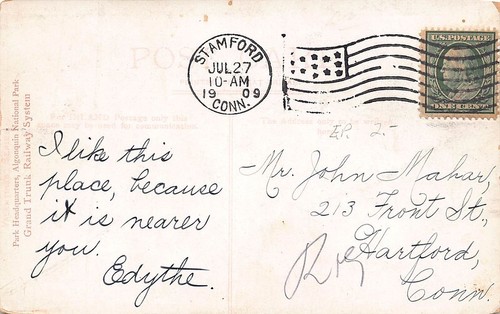 POST
STAMFORD
JUL 27
10-AM
1909
CONN.
U.S. POSTAGE
ONE CENT
Park Headquarters, Algonquin National Park
Grand Trunk Railway System
I like this
place, because
it is nearer
you.
Edythe.
E.P. 2.-
Mr. John Mahar,
213 Front St.,
Hartford,
Conn.